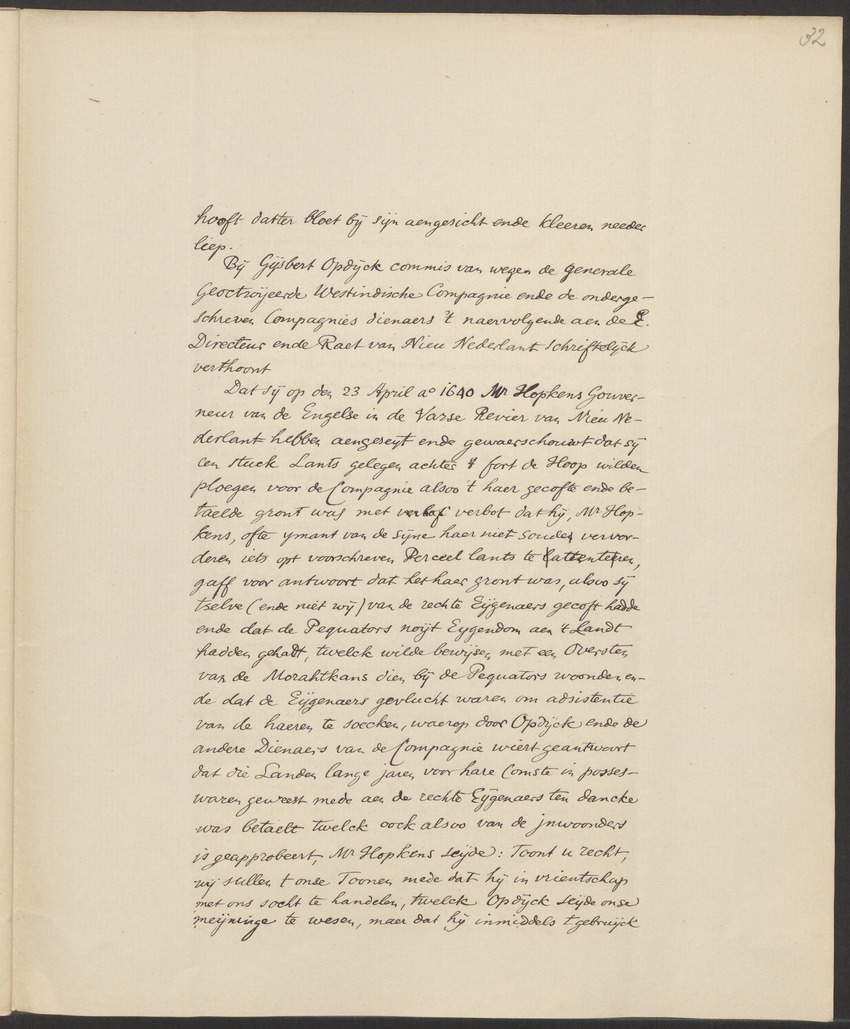 32
hooft datter bloet bij sijn aengesicht ende kleeren needer
liep.
Bij Gijsbert Opdijck commis van wegen de generale
Geoctroijeerde Westindische Compagnie ende de onderge-
schreven Compagnies dienaers 't naervolgende aen de E.
Directeur ende Raet van Nieu Nederlant schriftelijck
verthoont
Dat sij op den 23 April ao 1640 Mr Hopkens Gouver-
neur van de Engelse in de Varse Revier van Nieu Ne-
derlant hebben aengeseyt ende gewaerschouwt dat sij
een stuck Lants gelegen achter 't fort de Hoop wilden
ploegen voor de Compagnie alsoo 't haer gecofte ende be-
taelde gront was met verbot dat hij, Mr Hop-
kens, ofte ymant van de sijne haer niet souden vervor-
deren iets opt voorschreven Perceel lants te attenteren,
gaff voor antwoort dat het haer gront was, alsoo sij
tselve (ende niet wij) van de rechte Eijgenaers gecoft hadde
ende dat de Pequators noijt Eygendom aen 't Landt
hadden gehadt, twelck wilde bewijsen met een Oversten
van de Morahtkans dien bij de Pequators woonden en-
de dat de Eijgenaers gevlucht waren om adsistentie
van de haeren te soecken, waerop door Opdijck ende de
andere Dienaers van de Compagnie wiert geantwoort
dat die Landen lange jaren voor hare Comste in posses-
waren geweest mede aen de rechte Eijgenaers ten dancke
was betaelt twelck oock alsoo van de jnwoonders
is geapprobeert, Mr Hopkens seijde: Toont u recht,
wij sullen t onse Toonen mede dat hij in vrientschap
met ons socht te handelen, twelck Opdijck seijde onse
meijninge te wesen, maer dat hij inmiddels t gebruijck